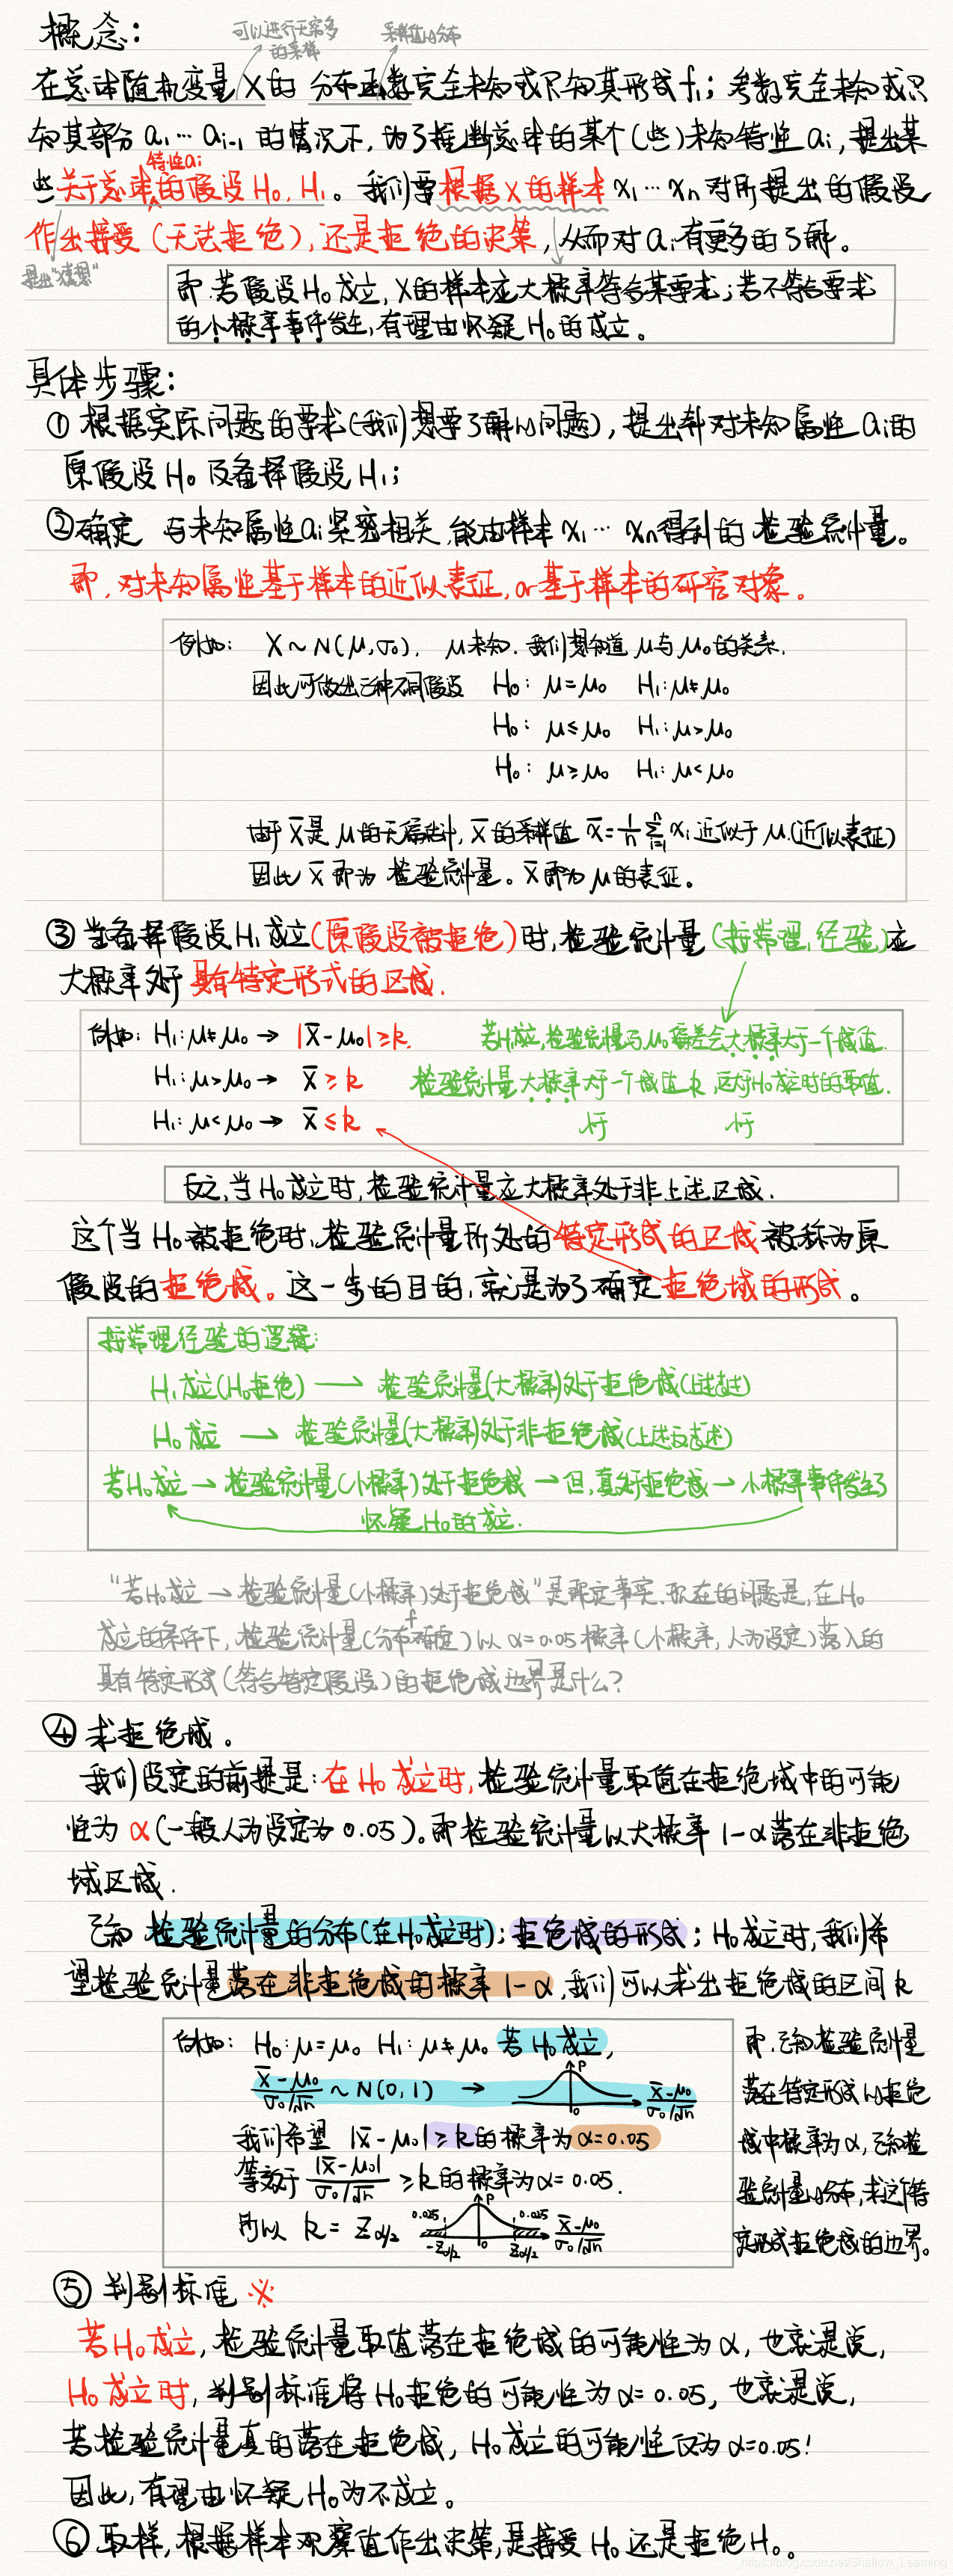 概念：
可以进行无穷多
的采样
采样值的分布
在总体随机变量 X 的 分布函数完全未知或只知其形式 f; 参数完全未知或只
知其部分 a₁ … aᵢ₋₁ 的情况下, 为了推断总体的某个(些)未知特性 aᵢ, 提出某
特性aᵢ
些关于总体的假设 H₀, H₁。我们要根据 X 的样本 x₁ … xₙ 对所提出的假设
作出接受 (无法拒绝), 还是拒绝的决策, 从而对 aᵢ 有更多的了解。
提出"猜想"
即: 若假设 H₀ 成立, X的样本应大概率符合某要求; 若不符合要求
的小概率事件发生, 有理由怀疑 H₀ 的成立。
具体步骤：
① 根据实际问题的要求(我们想要了解的问题), 提出针对未知属性 aᵢ的
原假设 H₀ 及备择假设 H₁;
②确定 与未知属性aᵢ紧密相关, 能由样本 x₁ … xₙ得到的 检验统计量。
即, 对未知属性基于样本的近似表征, or 基于样本的研究对象。
例如: X ~ N(μ, σ₀), μ未知. 我们想知道 μ与 μ₀ 的关系.
因此可做出三种不同假设 H₀: μ=μ₀ H₁: μ≠μ₀
H₀: μ≤μ₀ H₁: μ>μ₀
H₀: μ≥μ₀ H₁: μ<μ₀
由于 X̄是 μ的无偏估计, X̄ 的采样值 x̄ = 1/n Σⁿᵢ₌₁ xᵢ 近似于 μ.(近似表征)
因此 X̄ 即为 检验统计量。X̄ 即为 μ的表征。
③ 当备择假设 H₁ 成立(原假设被拒绝)时, 检验统计量 (按常理,经验)应
大概率处于 具有特定形式的区域.
例如: H₁: μ≠μ₀ → |X̄-μ₀| ≥ k. 若H₁成立,检验统计量与μ₀偏差会大概率大于一个域值.
H₁: μ>μ₀ → X̄ ≥ k 检验统计量大概率大于一个域值 k, 区大于H₀成立时的取值.
H₁: μ<μ₀ → X̄ ≤ k 小于 小于
反之, 当 H₀ 成立时, 检验统计量应大概率处于非上述区域.
这个当 H₀ 被拒绝时, 检验统计量所处的 特定形式的区域 被称为原
假设的拒绝域。这一步的目的, 就是为了确定 拒绝域的形式。
按常理经验的逻辑:
H₁成立(H₀拒绝) → 检验统计量(大概率)处于拒绝域(上述表述)
H₀成立 → 检验统计量(大概率)处于非拒绝域(上述反表述)
若H₀成立 → 检验统计量(小概率)处于拒绝域 → 但, 真处于拒绝域 → 小概率事件发生了
怀疑 H₀的成立.
"若H₀成立 → 检验统计量(小概率)处于拒绝域" 是既定事实. 现在的问题是, 在 H₀
成立的条件下, 检验统计量(分布f确定) 以 α=0.05 概率(小概率, 人为设定)落入的
具有特定形式(符合特定假设)的拒绝域边界是什么?
④ 求拒绝域。
我们设定的前提是: 在 H₀ 成立时, 检验统计量取值在拒绝域中的可能
性为 α(一般人为设定为 0.05)。即检验统计量以大概率 1-α落在非拒绝
域区域.
已知 检验统计量的分布(在H₀成立时); 拒绝域的形式; H₀成立时, 我们希
望检验统计量落在非拒绝域的概率 1-α, 我们可以求出拒绝域的区间 k
例如: H₀: μ=μ₀ H₁: μ≠μ₀ 若 H₀ 成立,
(X̄-μ₀)/(σ₀/√n) ~ N(0,1) → P 0 (X̄-μ₀)/(σ₀/√n)
我们希望 |X̄-μ₀| ≥ k 的概率为 α=0.05
等效于 |X̄-μ₀|/(σ₀/√n) ≥ k 的概率为 α=0.05.
所以 k = Z_α/2 0.025 -Z_α/2 P 0 0.025 Z_α/2 (X̄-μ₀)/(σ₀/√n)
即, 已知检验统计量
落在特定形式的拒绝
域中概率为 α, 已知检
验统计量的分布, 求这个特
定形式拒绝域的边界。
⑤ 判别标准 ※
若H₀成立, 检验统计量取值落在拒绝域的可能性为 α, 也就是说,
H₀ 成立时, 判别标准将 H₀ 拒绝的可能性为 α=0.05, 也就是说,
若检验统计量真的落在拒绝域, H₀ 成立的可能性仅为 α=0.05!
因此, 有理由怀疑 H₀ 为不成立。
⑥ 取样, 根据样本观察值作出决策, 是接受 H₀ 还是拒绝 H₀。
https://blog.csdn.net/Shallow_Learning